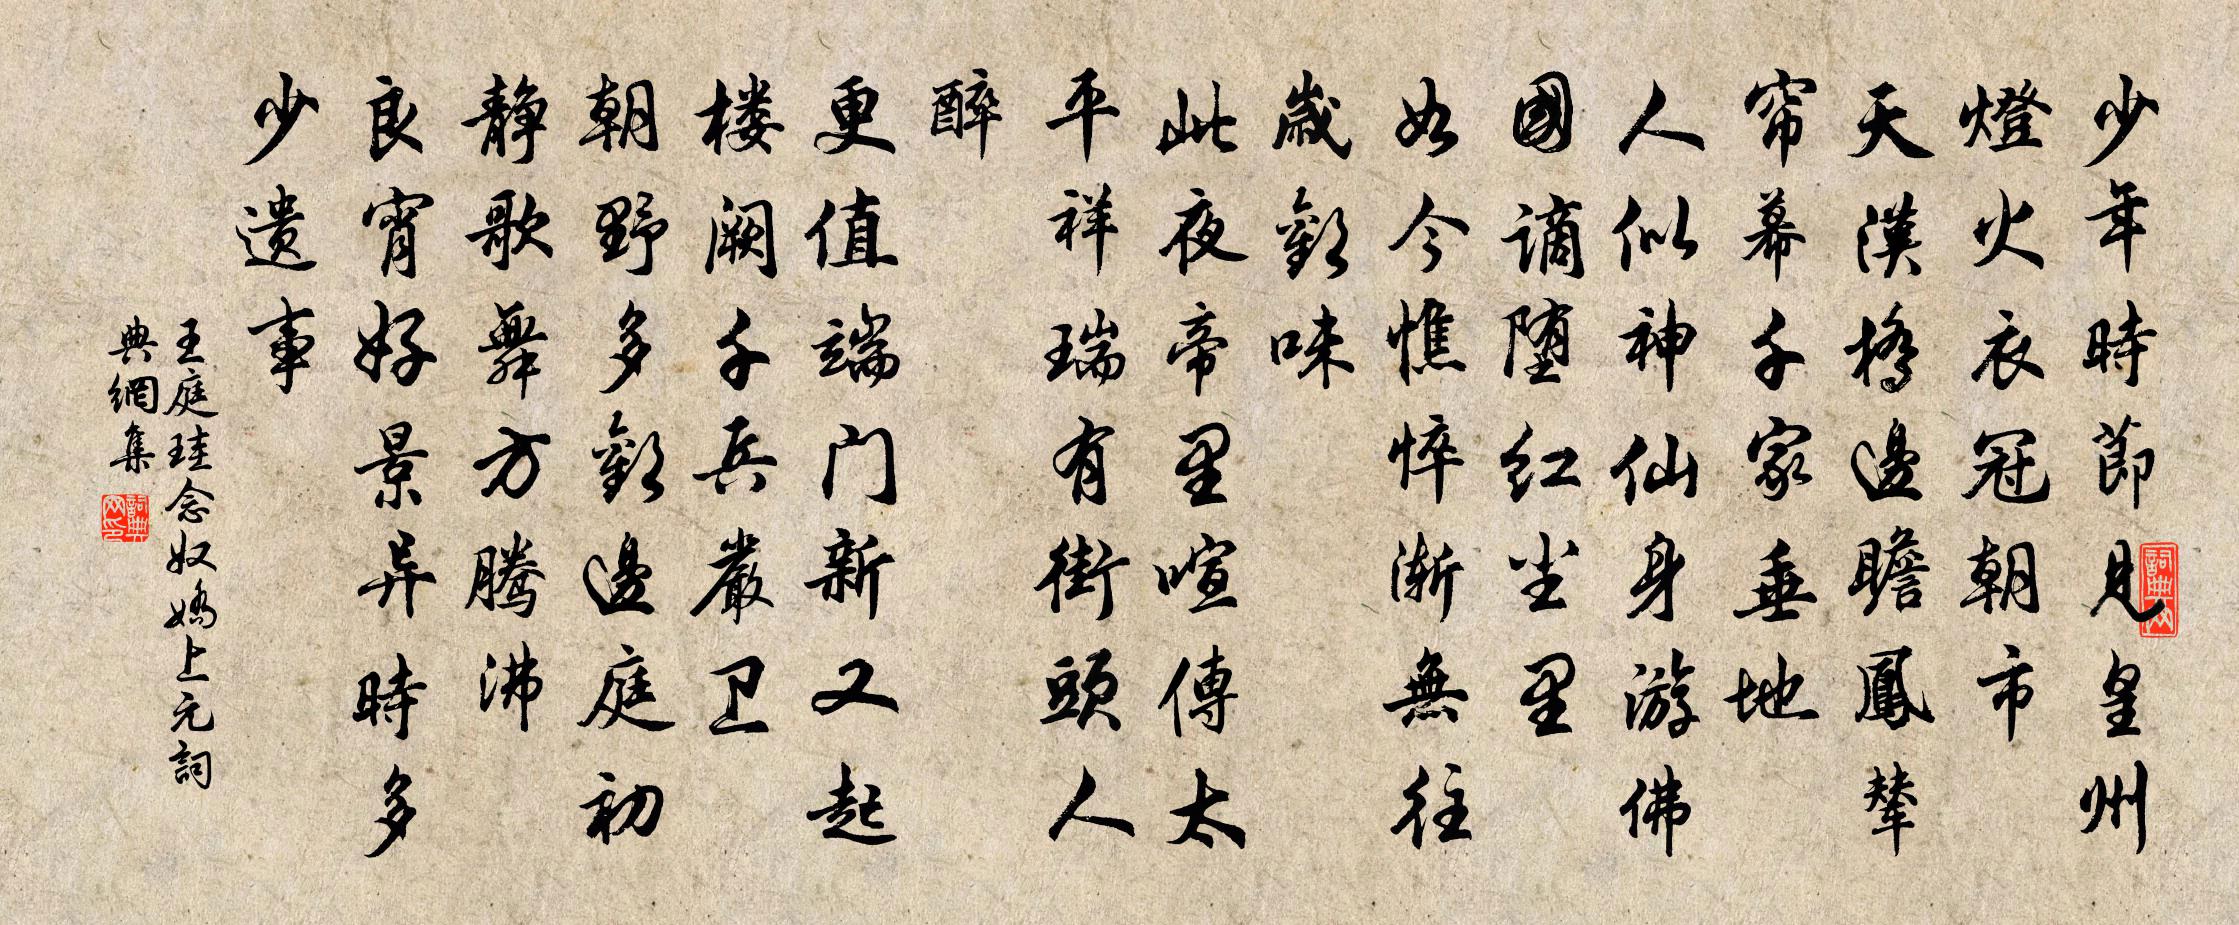 少年時節見皇州
燈火衣冠朝市
天漢橋邊瞻鳳輦
帘幕千家垂地
人似神仙身游佛
國謫堕红尘里
如今憔悴漸無往
歲歡味
此夜帝里喧傳太
平祥瑞有街頭人
醉
更值端门新又起
楼阙千兵嚴卫
朝野多歡邊庭初
静歌舞方腾沸
良宵好景异時多
少遗事
王庭珪念奴嬌上元詞
典網集
詞典网
詞典网印